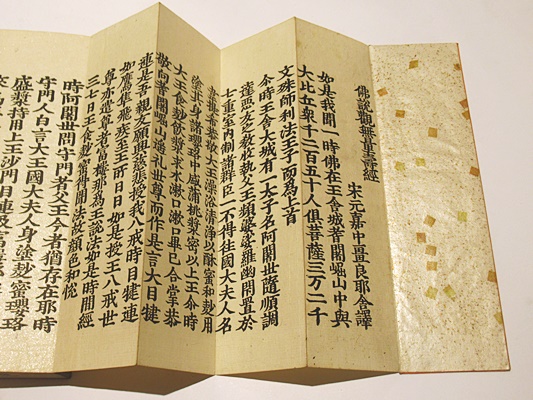 佛說觀無量壽經
宋元嘉中畺良耶舍譯
如是我聞一時佛在王舍城耆闍崛山中與
大比丘衆千二百五十人俱菩薩三万二千
文殊師利法王子而為上首
尒時王舍大城有一太子名阿闍世隨順調
達惡友之教收執父王頻婆娑羅幽閉置於
七重室内制諸群臣一不得往國大夫人名
韋提希恭敬大王澡浴清淨以酥蜜和麨用
塗其身諸瓔珞中盛蒲桃漿密以上王尒時
大王食麨飲漿求水漱口漱口畢已合掌恭
敬向耆闍崛山遥礼世尊而作是言大目揵
連是吾親友願興慈悲授我八戒時目揵連
如鷹隼飛疾至王所日日如是授王八戒世
尊亦遣尊者富樓那為王說法如是時間經
三七日王食麨蜜得聞法故顏色和悅
時阿闍世問守門者父王今者猶存在耶時
守門人白言大王國大夫人身塗麨蜜瓔珞
盛漿持用上王沙門目連及富